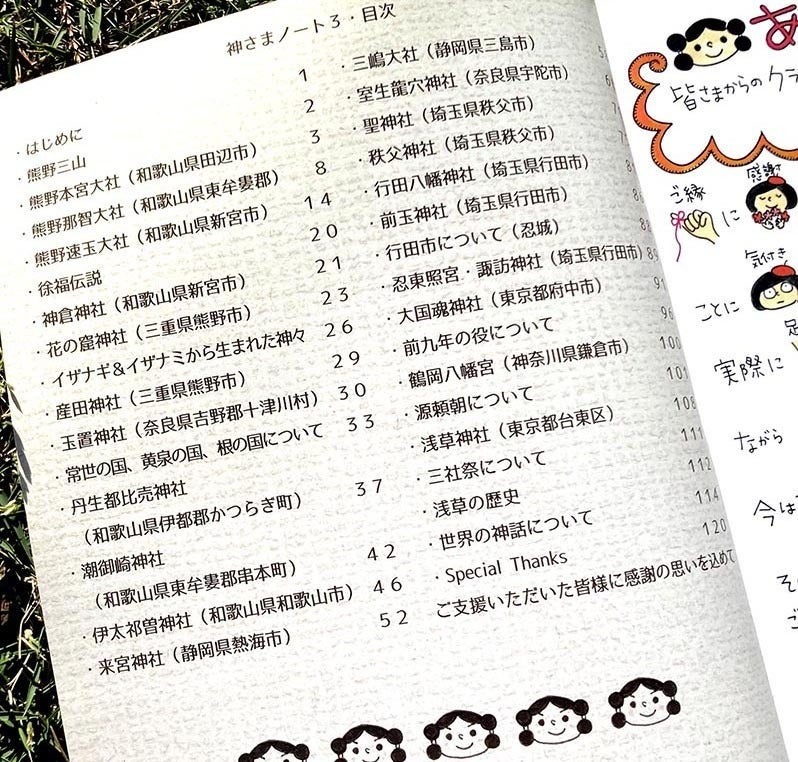 神さまノート３・目次
・はじめに １
・熊野三山 ２
・熊野本宮大社（和歌山県田辺市） ３
・熊野那智大社（和歌山県東牟婁郡） ８
・熊野速玉大社（和歌山県新宮市） １４
・徐福伝説 ２０
・神倉神社（和歌山県新宮市） ２１
・花の窟神社（三重県熊野市） ２３
・イザナギ＆イザナミから生まれた神々 ２６
・産田神社（三重県熊野市） ２９
・玉置神社（奈良県吉野郡十津川村） ３０
・常世の国、黄泉の国、根の国について ３３
・丹生都比売神社
（和歌山県伊都郡かつらぎ町） ３７
・潮御崎神社
（和歌山県東牟婁郡串本町） ４２
・伊太祁曽神社（和歌山県和歌山市） ４６
・来宮神社（静岡県熱海市） ５２
・三嶋大社（静岡県三島市）
・室生龍穴神社（奈良県宇陀市）
・聖神社（埼玉県秩父市）
・秩父神社（埼玉県秩父市）
・行田八幡神社（埼玉県行田市）
・前玉神社（埼玉県行田市）
・行田市について（忍城） 88
・忍東照宮・諏訪神社（埼玉県行田市） 89
・大国魂神社（東京都府中市） 91
・前九年の役について 96
・鶴岡八幡宮（神奈川県鎌倉市） 100
・源頼朝について 101
・浅草神社（東京都台東区） 108
・三社祭について 111
・浅草の歴史 112
・世界の神話について 114
・Special Thanks 120
ご支援いただいた皆様に感謝の思いを込めて
あ
皆さまからのクラ
感謝
ご縁
に
気付き
ことに
実際に
ながら
今は